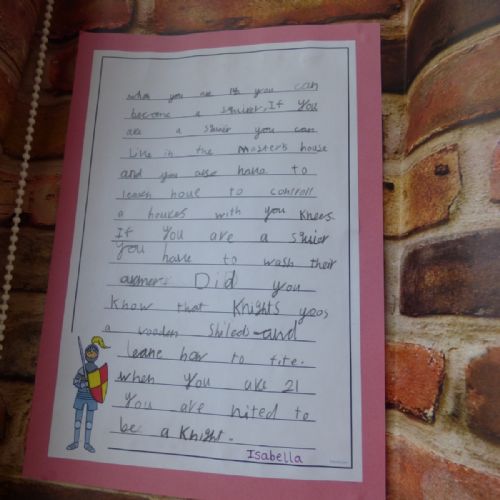 when you are 14 you can
become a squier. If you
are a squier you can
Live in the masters house
and you also have to
learn houe to controll
a houses with you knees.
If you are a squier
you have to wash their
armer. Did you
know that Knights yoos
a wooden shileds and
leane how to fite.
when you are 21
you are nited to
be a Knight.
Isabella